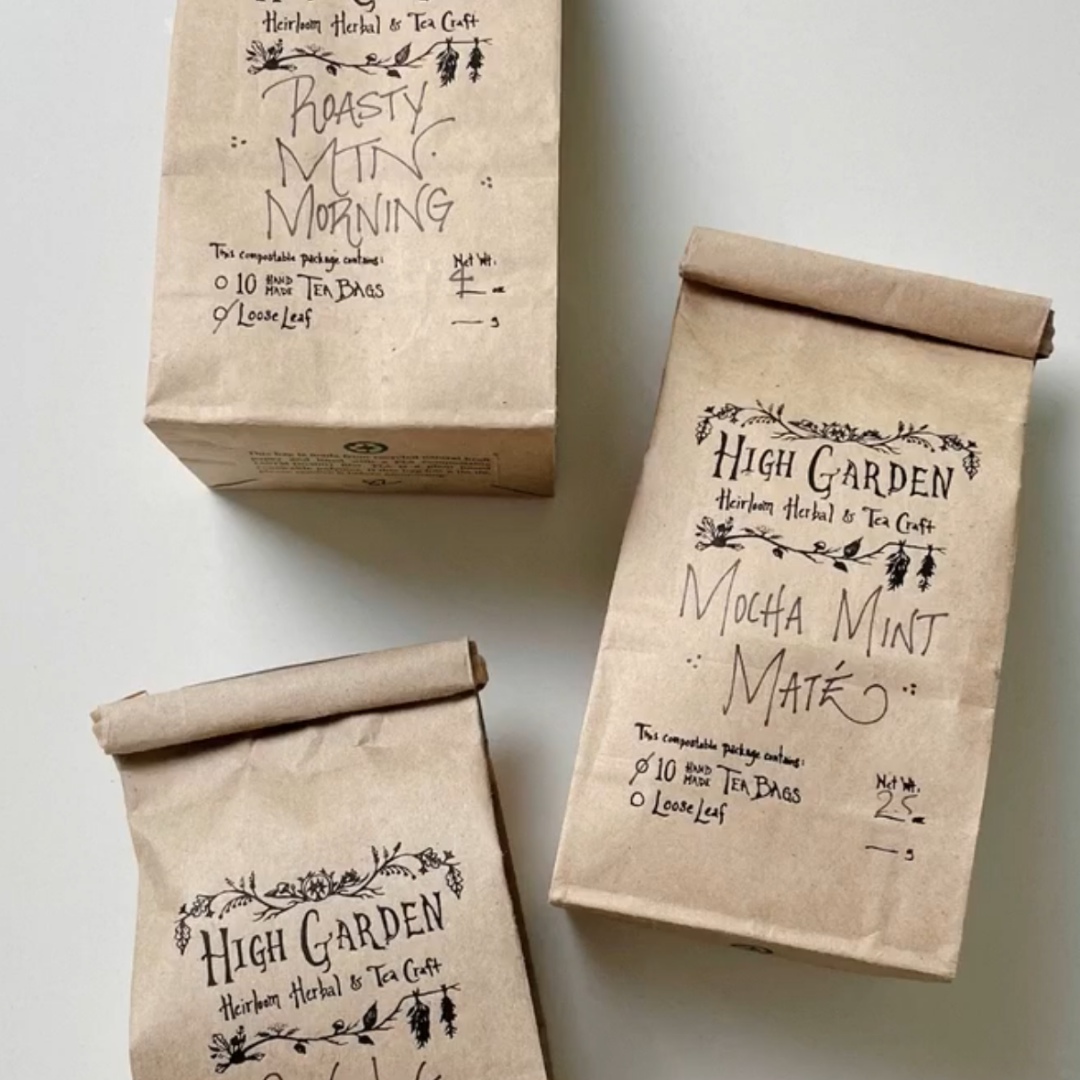 Heirloom Herbal & Tea Craft
ROASTY
MTN
MORNING
This compostable package contains:
Net Wt:
10 HAND MADE TEA BAGS
4 oz
Loose Leaf
g
HIGH GARDEN
Heirloom Herbal & Tea Craft
MOCHA MINT
MATÉ
This compostable package contains:
10 HAND MADE TEA BAGS
Net Wt.
2.5 oz
Loose Leaf
g
HIGH GARDEN
Heirloom Herbal & Tea Craft